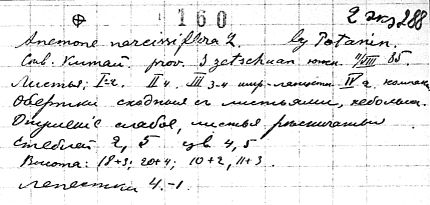 160 2 экз 288
Anemone narcissiflora L. by Potanin.
Сев. Китай. prov. Szetschuan южн. VIII 85.
Листья; I-г. II ч. III 3-и шир. лапчаты. IV г.
Обертки сходныя с листьями, небольш.
Опушение слабое, листья
Стеблей 2, 5 цв 4, 5
Высота: 18+3; 20+4; 10+2, 11+3.
лепестки 4.-1.